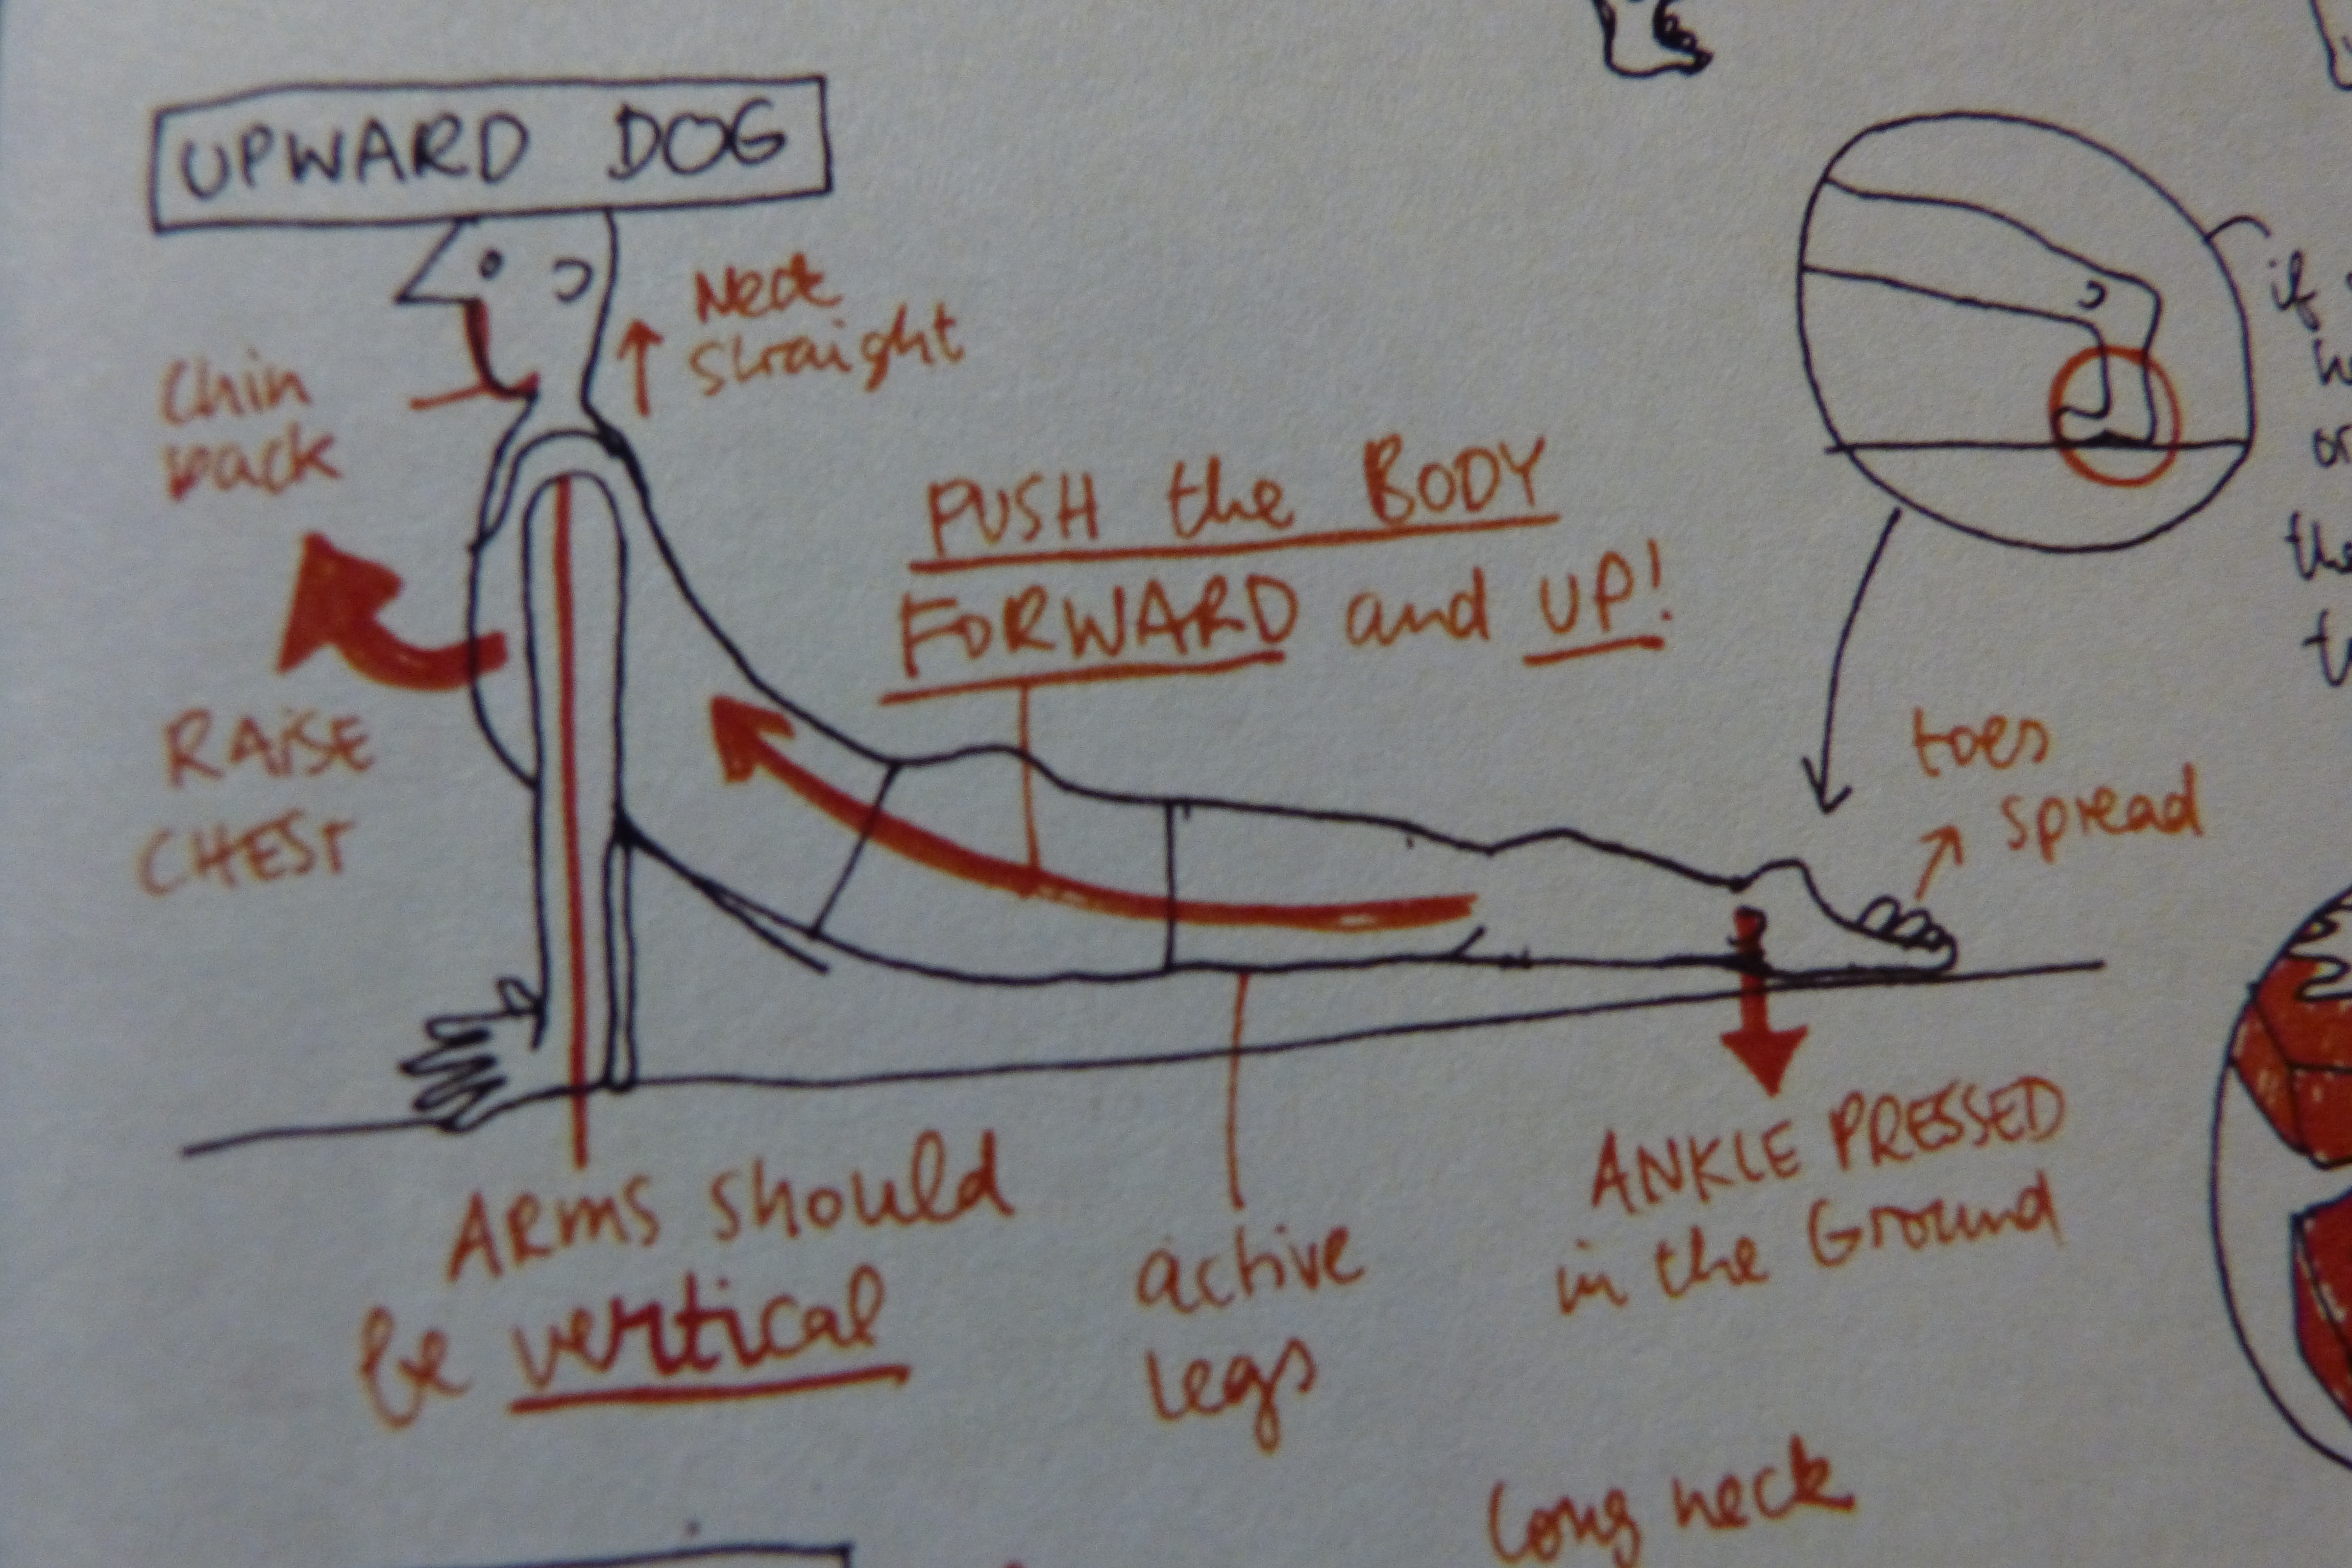 UPWARD DOG
Neck
straight
Chin
back
RAiSE
CHEST
PUSH the BODY
FORWARD and UP!
toes
spread
ARMS should
be vertical
active
legs
ANKLE PRESSED
in the Ground
long neck
if
the